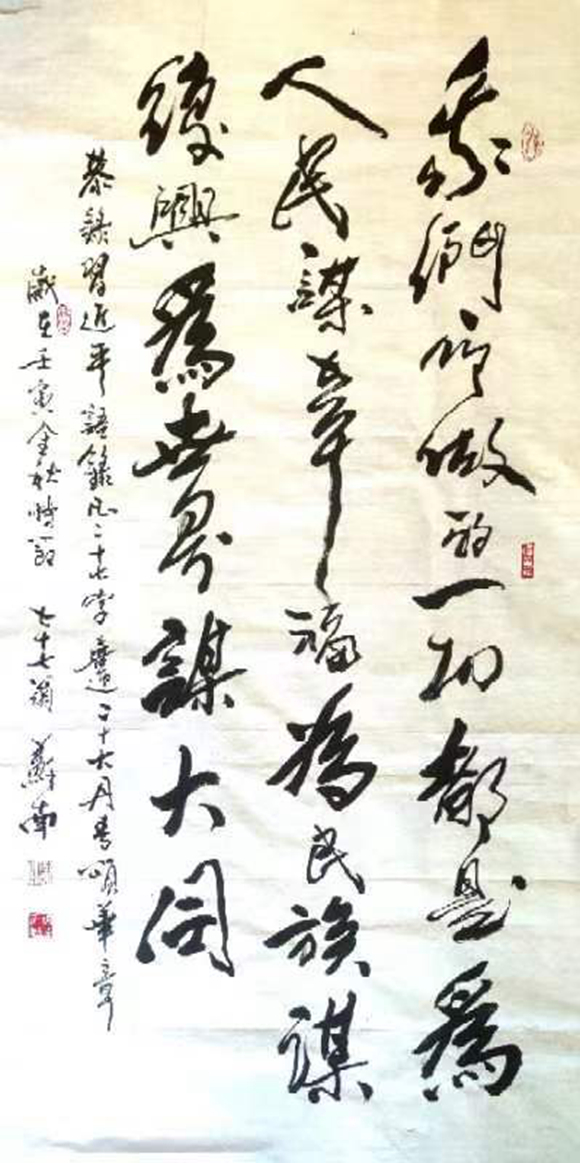 我們所做的一切都是為
人民謀幸福為民族謀
復興為世界謀大同
恭錄習近平語錄凡二十七字迎二十大丹青頌華章
歲在壬寅金秋時節 七十七翁 蘇南